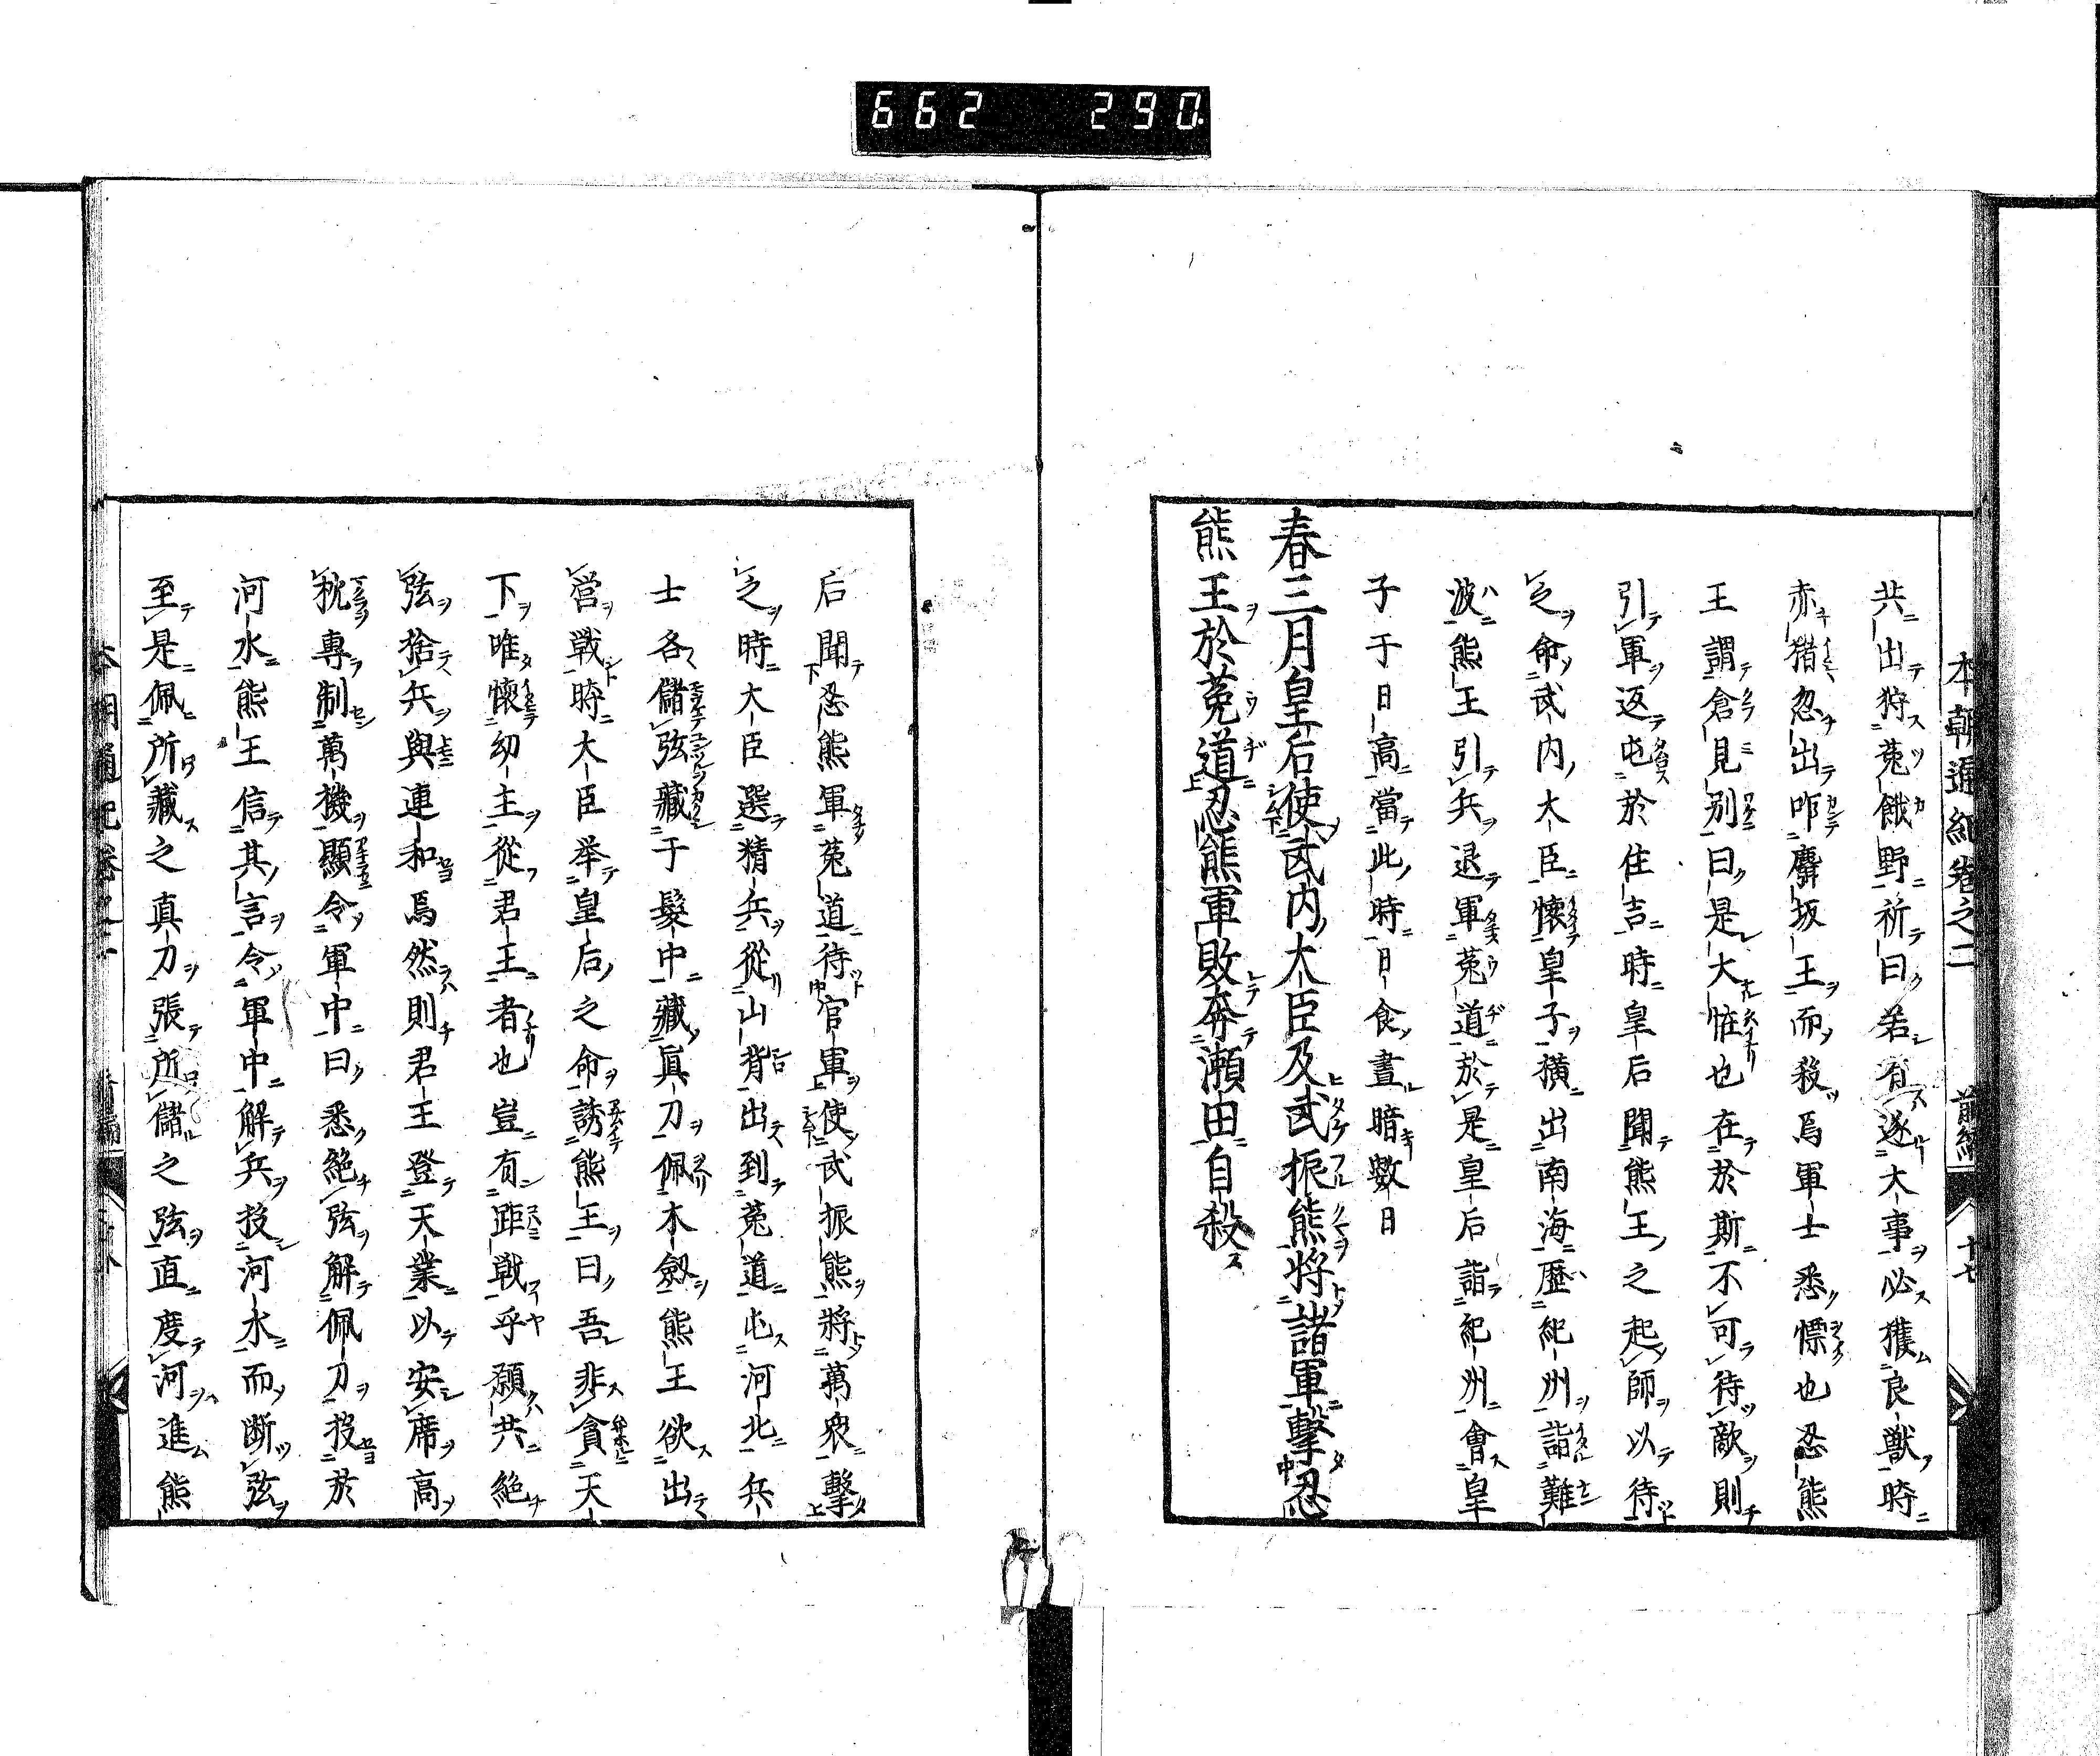 662 290
本朝通紀卷之二 前編 十七
共出狩菟餓野祈曰若有遂大事必獲良獸時
赤猪忽出咋麛坂王而殺焉軍士悉慓也忍熊
王謂倉見別曰是大恠也在於斯不可待敵則
引軍返屯於住吉時皇后聞熊王之起師以待
之命武内大臣懷皇子橫出南海歷紀州詣難
波熊王引兵退軍菟道於是皇后詣紀州會皇
子于日高當此時日食晝暗數日
春三月皇后使武内大臣及武振熊將諸軍擊忍
熊王於菟道忍熊軍敗奔瀬田自殺
后聞忍熊軍菟道待官軍使武振熊將萬衆擊
之時大臣選精兵從山背出到菟道屯河北兵
士各儲弦藏于髮中藏眞刀佩木劔熊王欲出
営戰時大臣举皇后之命誘熊王曰吾非貪天
下唯懷幼主從君王者也豈有距戰乎願共絕
弦捨兵與連和焉然則君王登天業以安席高
枕專制萬機顯令軍中曰悉絕弦解佩刀投於
河水熊王信其言令軍中解兵投河水而断弦
至是佩所藏之真刀張所儲之弦直度河進熊